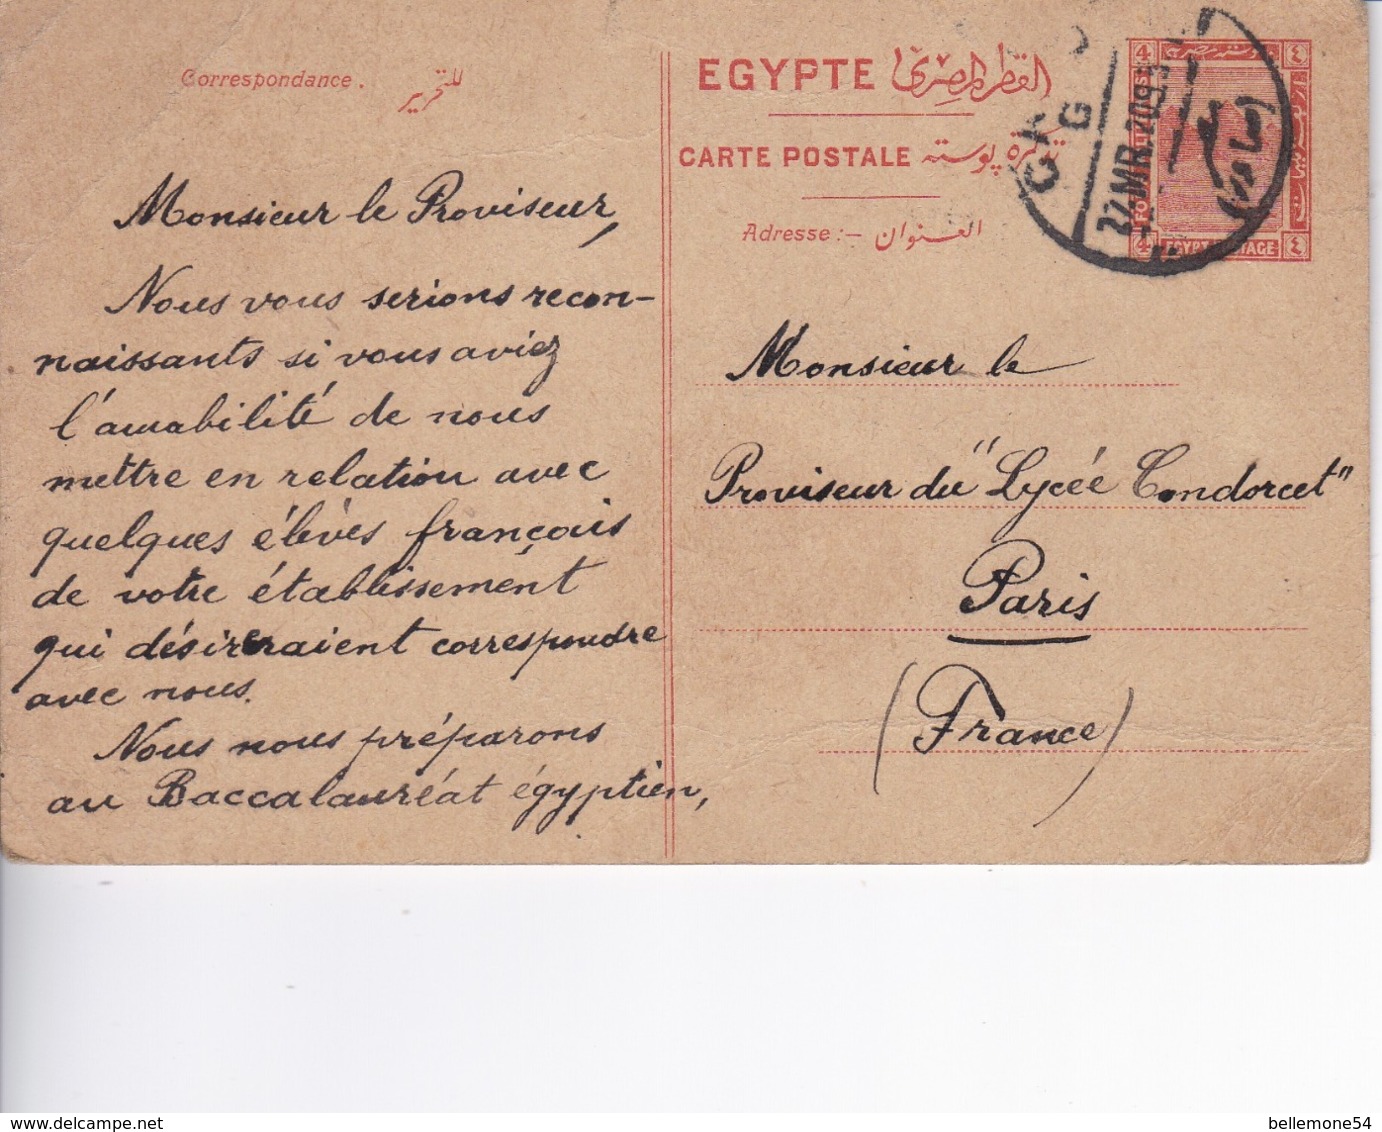 Correspondance. للتحرير
Monsieur le Proviseur,
Nous vous serions recon-
naissants si vous aviez
l'amabilité de nous
mettre en relation avec
quelques élèves français
de votre établissement
qui désireraient correspondre
avec nous.
Nous nous préparons
au Baccalauréat égyptien,
EGYPTE القطر المصري
CARTE POSTALE تذكرة بوسته
Adresse :— العنوان
4 بوستة مصرية ٤
4 EGYPT POSTAGE ٤
27.MR.20
Monsieur le
Proviseur du "Lycée Condorcet"
Paris
(France)
bellemone54